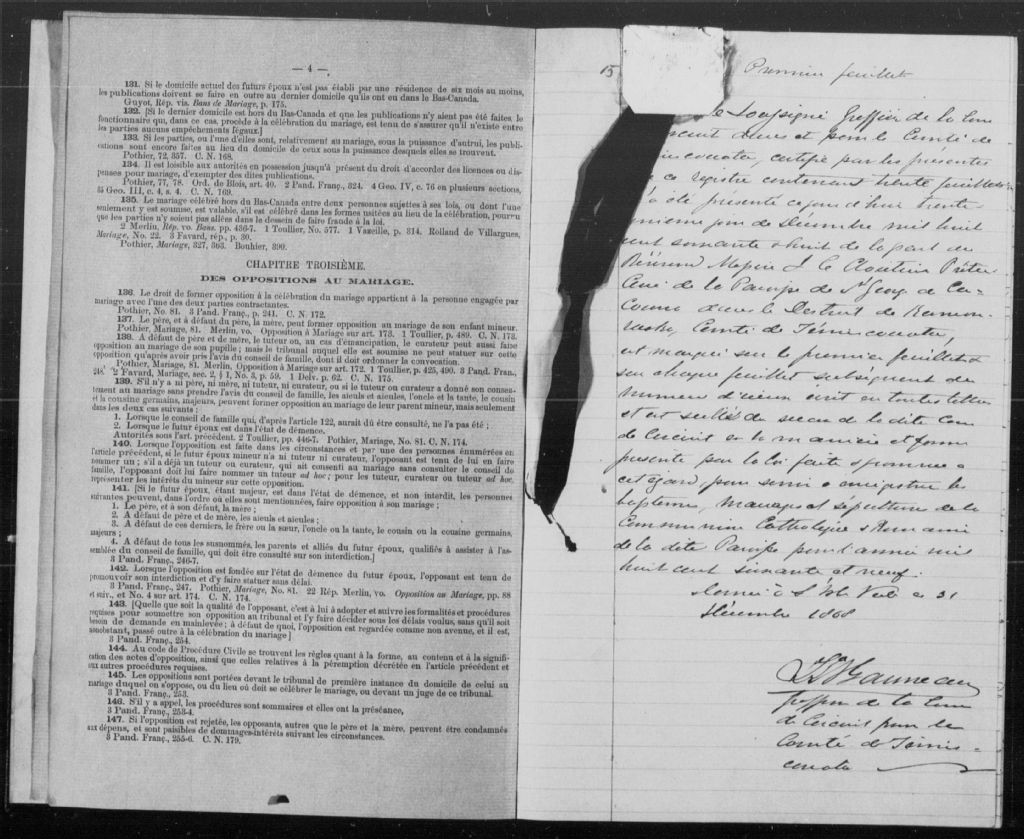 — 4 —
131. Si le domicile actuel des futurs époux n'est pas établi par une résidence de six mois au moins,
les publications doivent se faire en outre au dernier domicile qu'ils ont eu dans le Bas-Canada.
Guyot, Rép. vis. Bans de Mariage, p. 175.
132. [Si le dernier domicile est hors du Bas-Canada et que les publications n'y aient pas été faites, le
fonctionnaire qui, dans ce cas, procède à la célébration du mariage, est tenu de s'assurer qu'il n'existe entre
les parties aucuns empêchements légaux.]
133. Si les parties, ou l'une d'elles, sont, relativement au mariage, sous la puissance d'autrui, les publi-
cations sont encore faites au lieu du domicile de ceux sous la puissance desquels elles se trouvent.
Pothier, 72, 357. C. N. 168.
134. Il est loisible aux autorités en possession jusqu'à présent du droit d'accorder des licences ou dis-
penses pour mariage, d'exempter des dites publications.
Pothier, 77, 78. Ord. de Blois, art. 40. 2 Pand. Franç., 324. 4 Geo. IV, c. 76 en plusieurs sections,
35 Geo. III, c. 4, s. 4. C. N. 169.
135. Le mariage célébré hors du Bas-Canada entre deux personnes sujettes à ses lois, ou dont l'une
seulement y est soumise, est valable, s'il est célébré dans les formes usitées au lieu de la célébration, pourvu
que les parties n'y soient pas allées dans le dessein de faire fraude à la loi.
2 Merlin, Rép. vo. Bans, pp. 436-7. 1 Toullier, No. 577. 1 Vazeille, p. 314. Rolland de Villargues,
Mariage, No. 22. 3 Favard, rép., p. 30.
Pothier, Mariage, 327, 363. Bouhier, 390.
CHAPITRE TROISIÈME.
DES OPPOSITIONS AU MARIAGE.
136. Le droit de former opposition à la célébration du mariage appartient à la personne engagée par
mariage avec l'une des deux parties contractantes.
Pothier, No. 81. 3 Pand. Franç., p. 241. C. N. 172.
137. Le père, et à défaut du père, la mère, peut former opposition au mariage de son enfant mineur.
Pothier, Mariage, 81. Merlin, vo. Opposition à Mariage sur art. 173. 1 Toullier, p. 489. C. N. 173.
138. A défaut de père et de mère, le tuteur ou, au cas d'émancipation, le curateur peut aussi faire
opposition au mariage de son pupille; mais le tribunal auquel elle est soumise ne peut statuer sur cette
opposition qu'après avoir pris l'avis du conseil de famille, dont il doit ordonner la convocation.
Pothier, Mariage, 81. Merlin, Opposition à Mariage sur art. 172. 1 Toullier, p. 425, 490. 3 Pand. Fran.,
248. 2 Favard, Mariage, sec. 2, § 1, No. 3, p. 59. 1 Delv. p. 62. C. N. 175.
139. S'il n'y a ni père, ni mère, ni tuteur, ni curateur, ou si le tuteur ou curateur a donné son consen-
tement au mariage sans prendre l'avis du conseil de famille, les aïeuls et aïeules, l'oncle et la tante, le cousin
et la cousine germains, majeurs, peuvent former opposition au mariage de leur parent mineur, mais seulement
dans les deux cas suivants:
1. Lorsque le conseil de famille qui, d'après l'article 122, aurait dû être consulté, ne l'a pas été;
2. Lorsque le futur époux est dans l'état de démence.
Autorités sous l'art. précédent. 2 Toullier, pp. 446-7. Pothier, Mariage, No. 81. C. N. 174.
140. Lorsque l'opposition est faite dans les circonstances et par une des personnes énumérées en
l'article précédent, si le futur époux mineur n'a ni tuteur ni curateur, l'opposant est tenu de lui en faire
nommer un; s'il a déjà un tuteur ou curateur, qui ait consenti au mariage sans consulter le conseil de
famille, l'opposant doit lui faire nommer un tuteur ad hoc; pour les tuteur, curateur ou tuteur ad hoc,
représenter les intérêts du mineur sur cette opposition.
141. [Si le futur époux, étant majeur, est dans l'état de démence, et non interdit, les personnes
suivantes peuvent, dans l'ordre où elles sont mentionnées, faire opposition à son mariage;
1. Le père, et à son défaut, la mère;
2. A défaut de père et de mère, les aïeuls et aïeules;
3. A défaut de ces derniers, le frère ou la sœur, l'oncle ou la tante, le cousin ou la cousine germains,
majeurs;
4. A défaut de tous les susnommés, les parents et alliés du futur époux, qualifiés à assister à l'as-
semblée du conseil de famille, qui doit être consulté sur son interdiction.]
3 Pand. Franç., 246-7.
142. Lorsque l'opposition est fondée sur l'état de démence du futur époux, l'opposant est tenu de
promouvoir son interdiction et d'y faire statuer sans délai.
3 Pand. Franç., 247. Pothier, Mariage, No. 81. 22 Rép. Merlin, vo. Opposition au Mariage, pp. 88
et suiv., et No. 4 sur art. 174. C. N. 174.
143. [Quelque que soit la qualité de l'opposant, c'est à lui à adopter et suivre les formalités et procédures
requises pour soumettre son opposition au tribunal et l'y faire décider sous les délais voulus, sans qu'il soit
besoin de demande en mainlevée; à défaut de quoi, l'opposition est regardée comme non avenue, et il est,
nonobstant, passé outre à la célébration du mariage]
3 Pand. Franç., 254.
144. Au code de Procédure Civile se trouvent les règles quant à la forme, au contenu et à la signifi-
cation des actes d'opposition, ainsi que celles relatives à la péremption décrétée en l'article précédent et
aux autres procédures requises.
145. Les oppositions sont portées devant le tribunal de première instance du domicile de celui au
mariage duquel on s'oppose, ou du lieu où doit se célébrer le mariage, ou devant un juge de ce tribunal.
3 Pand. Franç., 253.
146. S'il y a appel, les procédures sont sommaires et elles ont la préséance,
3 Pand. Franç., 253-4.
147. Si l'opposition est rejetée, les opposants, autres que le père et la mère, peuvent être condamnés
aux dépens, et sont passibles de dommages-intérêts suivant les circonstances.
3 Pand. Franç., 255-6. C. N. 179.
15 Premier feuillet
Soussigné Greffier de la Cour
Circuit dans et pour le Comté de
couata, certifie par les présentes
ce registre contenant trente feuillets
a été présenté ce jour d'hui trente
unième jour de Décembre mil huit
cent soixante & huit de la part du
Révérend Messire J. C. Cloutier Prêtre
Curé de la Paroisse de St Georges de Ca-
couna dans le District de Kamou-
raska, Comté de Témiscouata,
est marqué sur le premier feuillet &
sur chaque feuillet subséquent du
numéro d'iceux écrit en toutes lettres
et est scellé du sceau de la dite Cour
de Circuit en la manière et forme
presente par la loi faite & pourvue a
cet égard, pour servir a enregistrer les
baptêmes, mariages et sépultures de la
Communion Catholique & Romaine
de la dite Paroisse pour l'année mil
huit cent soixante et neuf.
Donné à 31
Décembre 1868
Greffier de la Cour
de Circuit pour le
Comté de Témis-
couata